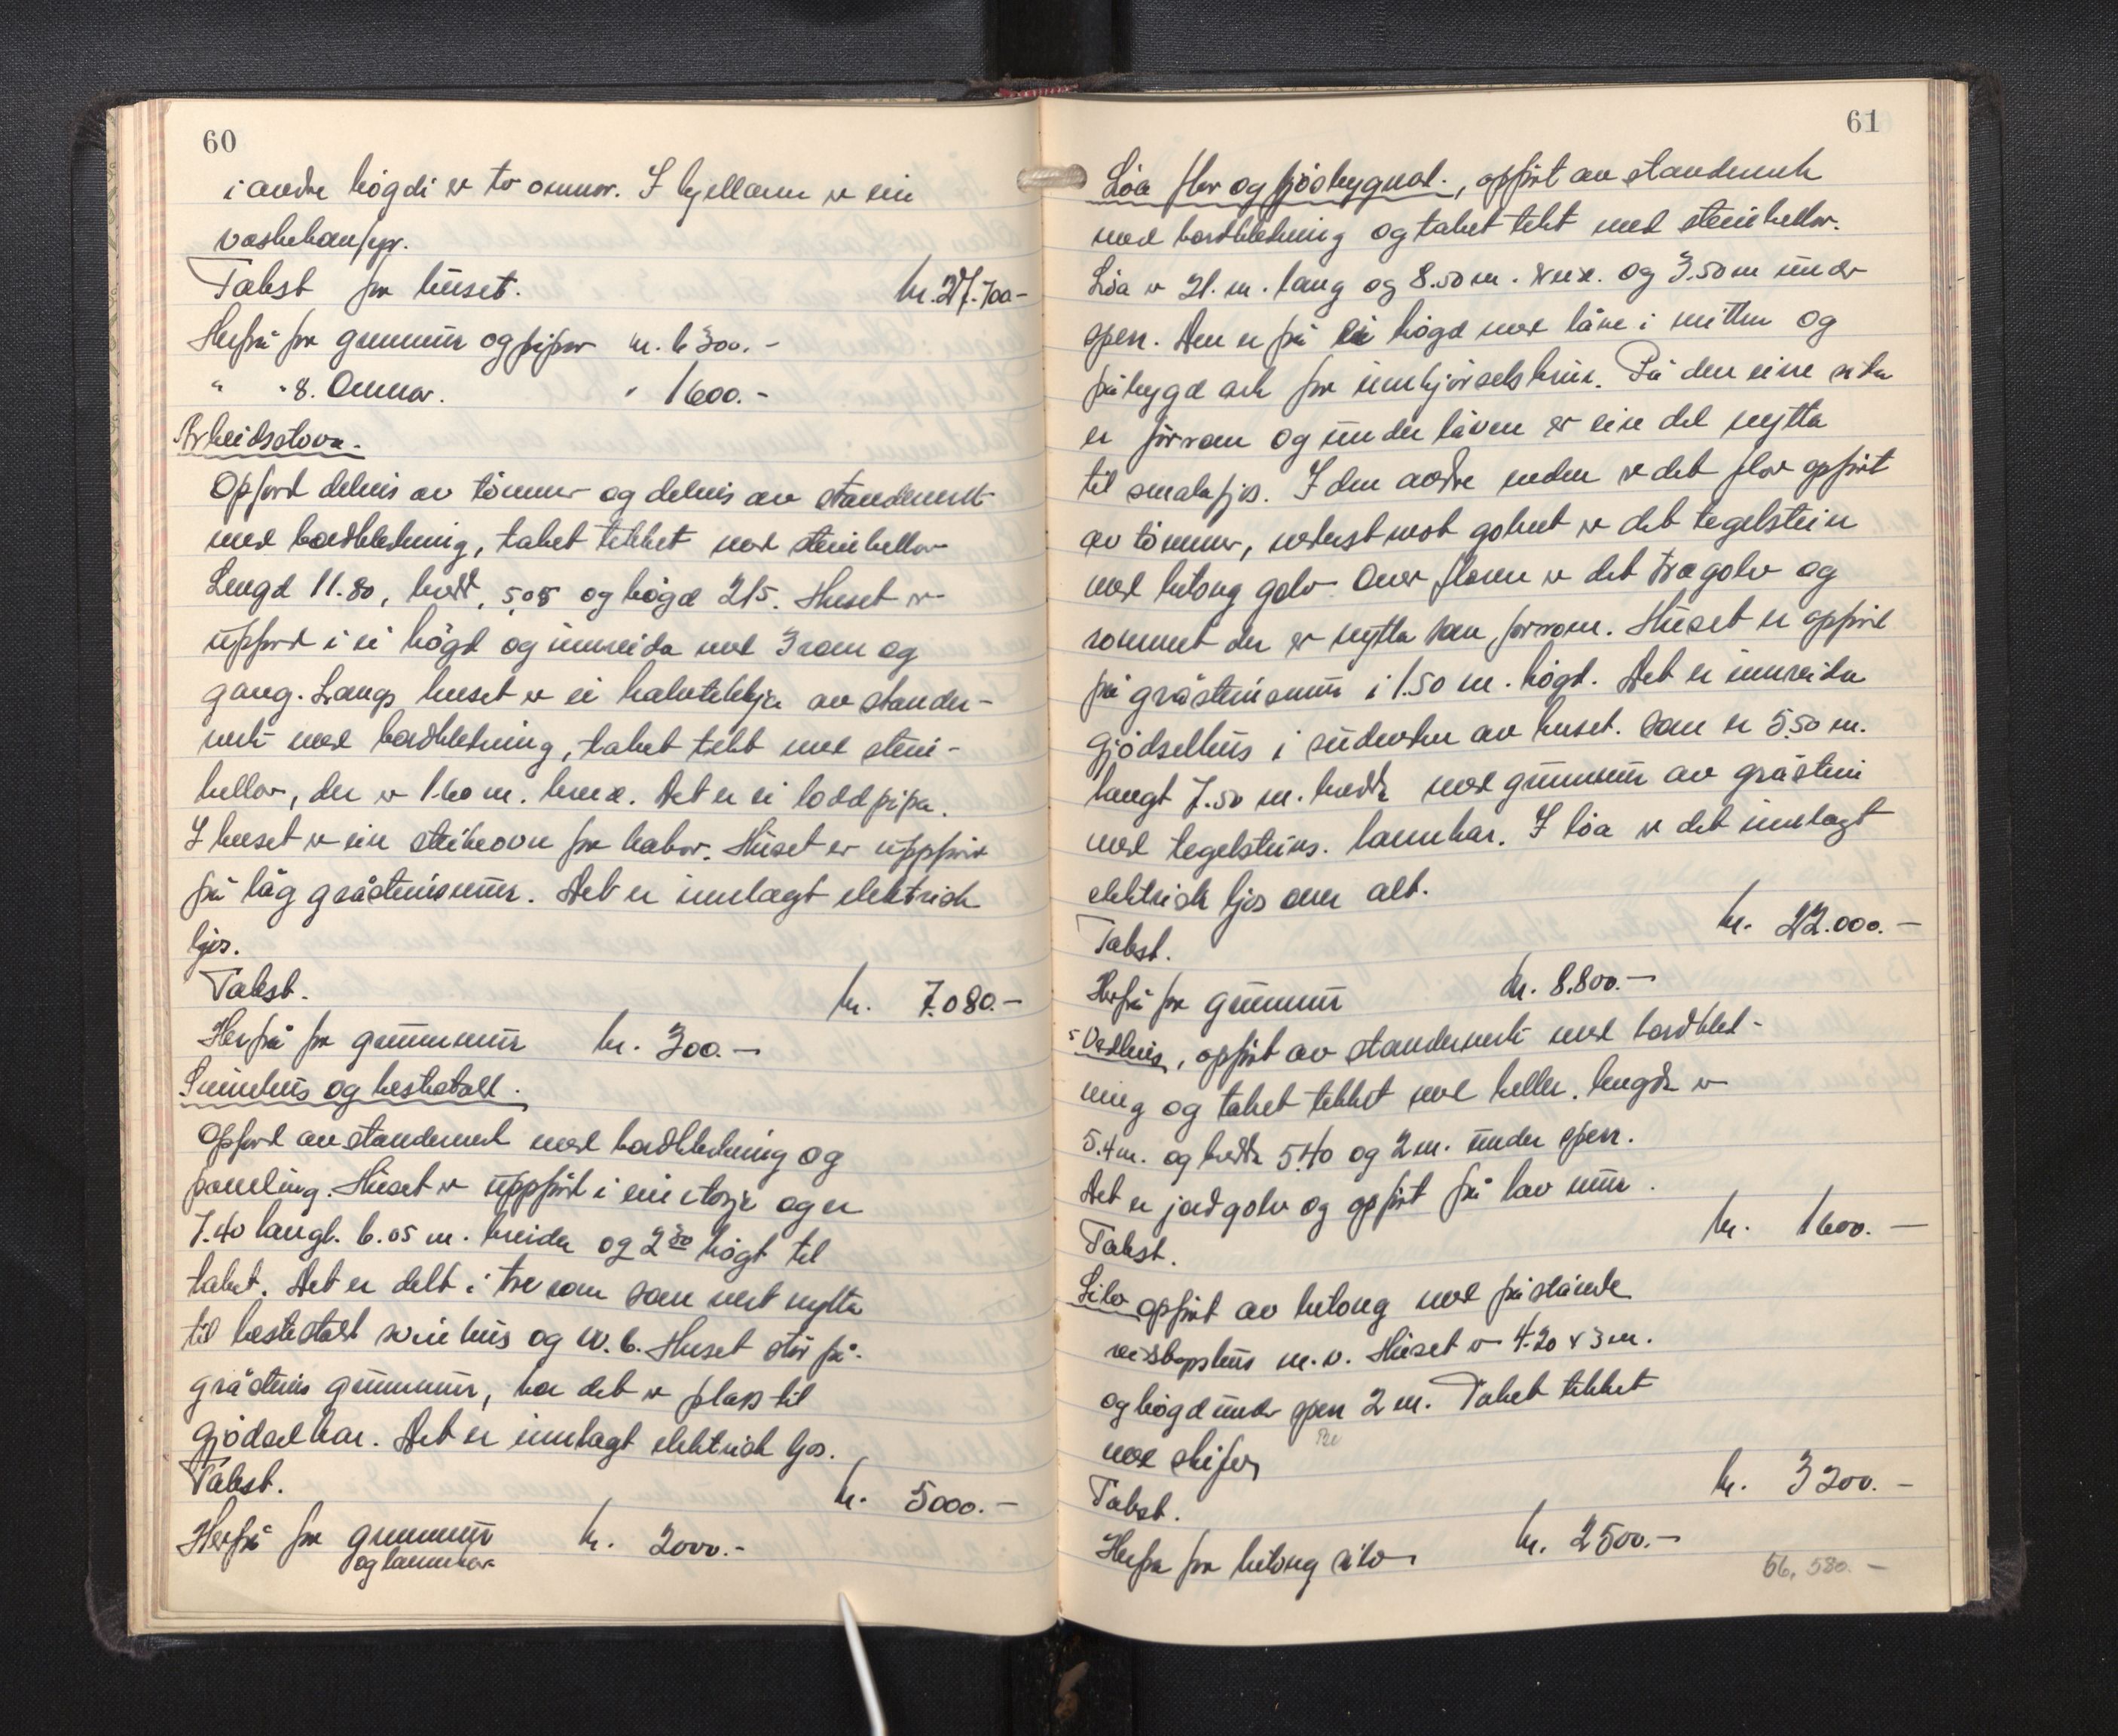 60
i andre högdi er to omnar. I kjellaren er ein
vaskekum/gr.
Takst for huset. kr. 27.700-
Herfrå for grunnmur og pipor kr. 6300.-
" " 8. Omnar. " 1600.-
Arbeidsstova.
Opført delvis av tömmer og delvis av standerverk
med bordkledning, taket tekket med steinheller
Lengd 11.80, bredd, 5.05 og högd 215. Huset er
uppført i ei högd og innreida med 3 rom og
gang. Langs huset er ei halvtekkja av stander-
verk med bordkledning, taket tekt med stein-
hellor, den er 1.60 m. breid. Det er ei loddpipa.
I huset er ein steikeovn for kakor. Huset er uppført
på låg gråsteinsmur. Det er innlagt elektrisk
ljos.
Takst. kr. 7.080.-
Herfrå for grunnmur kr. 300.-
Svinehus og hestestall.
Opført av standerverk med bordkledning og
paneling. Huset er uppført i ein etasje og er
7.40 langt. 6.05 m. breida og 2.30 högt til
taket. Det er delt i tre rom som vert nytta
til hestestall svinehus og W.C. Huset står på
gråsteins grunnmur, her det er plass til
gjødselkar. Det er innlagt elektrisk ljos.
Takst. kr. 5000.-
Herfrå for grunnmur kr. 2000.-
og lannkar
61
Löa flor og fjösbygnad., oppført av standerverk
med bordkledning og taket tekt med steinhellor.
Löa er 21. m. lang og 8.50 m. breid. og 3.50 m under
sperr. Den er på ei högd med låve i mitten og
påbygd ark for innkjörselsbrui. På den eine sida
er fôrrom og under låven er ein del nytta
til smalafjös. I den andre enden er det flor oppført
av tömmer, nederst mot golvet er det tegelstein
med betong golv. Over floren er det tregolv og
rommet der er nytta som fôrrom. Huset er oppført
på gråsteinsmur i 1.50 m. högd. Det er innreida
gjödselhus i suderenden av huset. som er 5.50 m.
langt 7.50 m. bredde med grunnmur av gråstein
med tegelsteins. lannkar. I löa er det innlagt
elektrisk ljos over alt.
Takst. kr. 22.000.-
Herfrå for grunnmur kr. 8.800.-
Vedhus, oppført av standerverk med bordkled-
ning og taket tekket med heller. lengda er
5.4 m. og bredda 5.40 og 2 m. under sperr.
Det er jordgolv og oppført på lav mur.
Takst. kr. 1600.-
Silo oppført av betong med påstående
reidskapshus m.v. Huset er 4.20 x 3 m.
og högd under sperr 2 m. Taket tekket
med skifer
Takst. kr. 3200.-
Herfra for betong silo kr. 2500.-
56,580.-